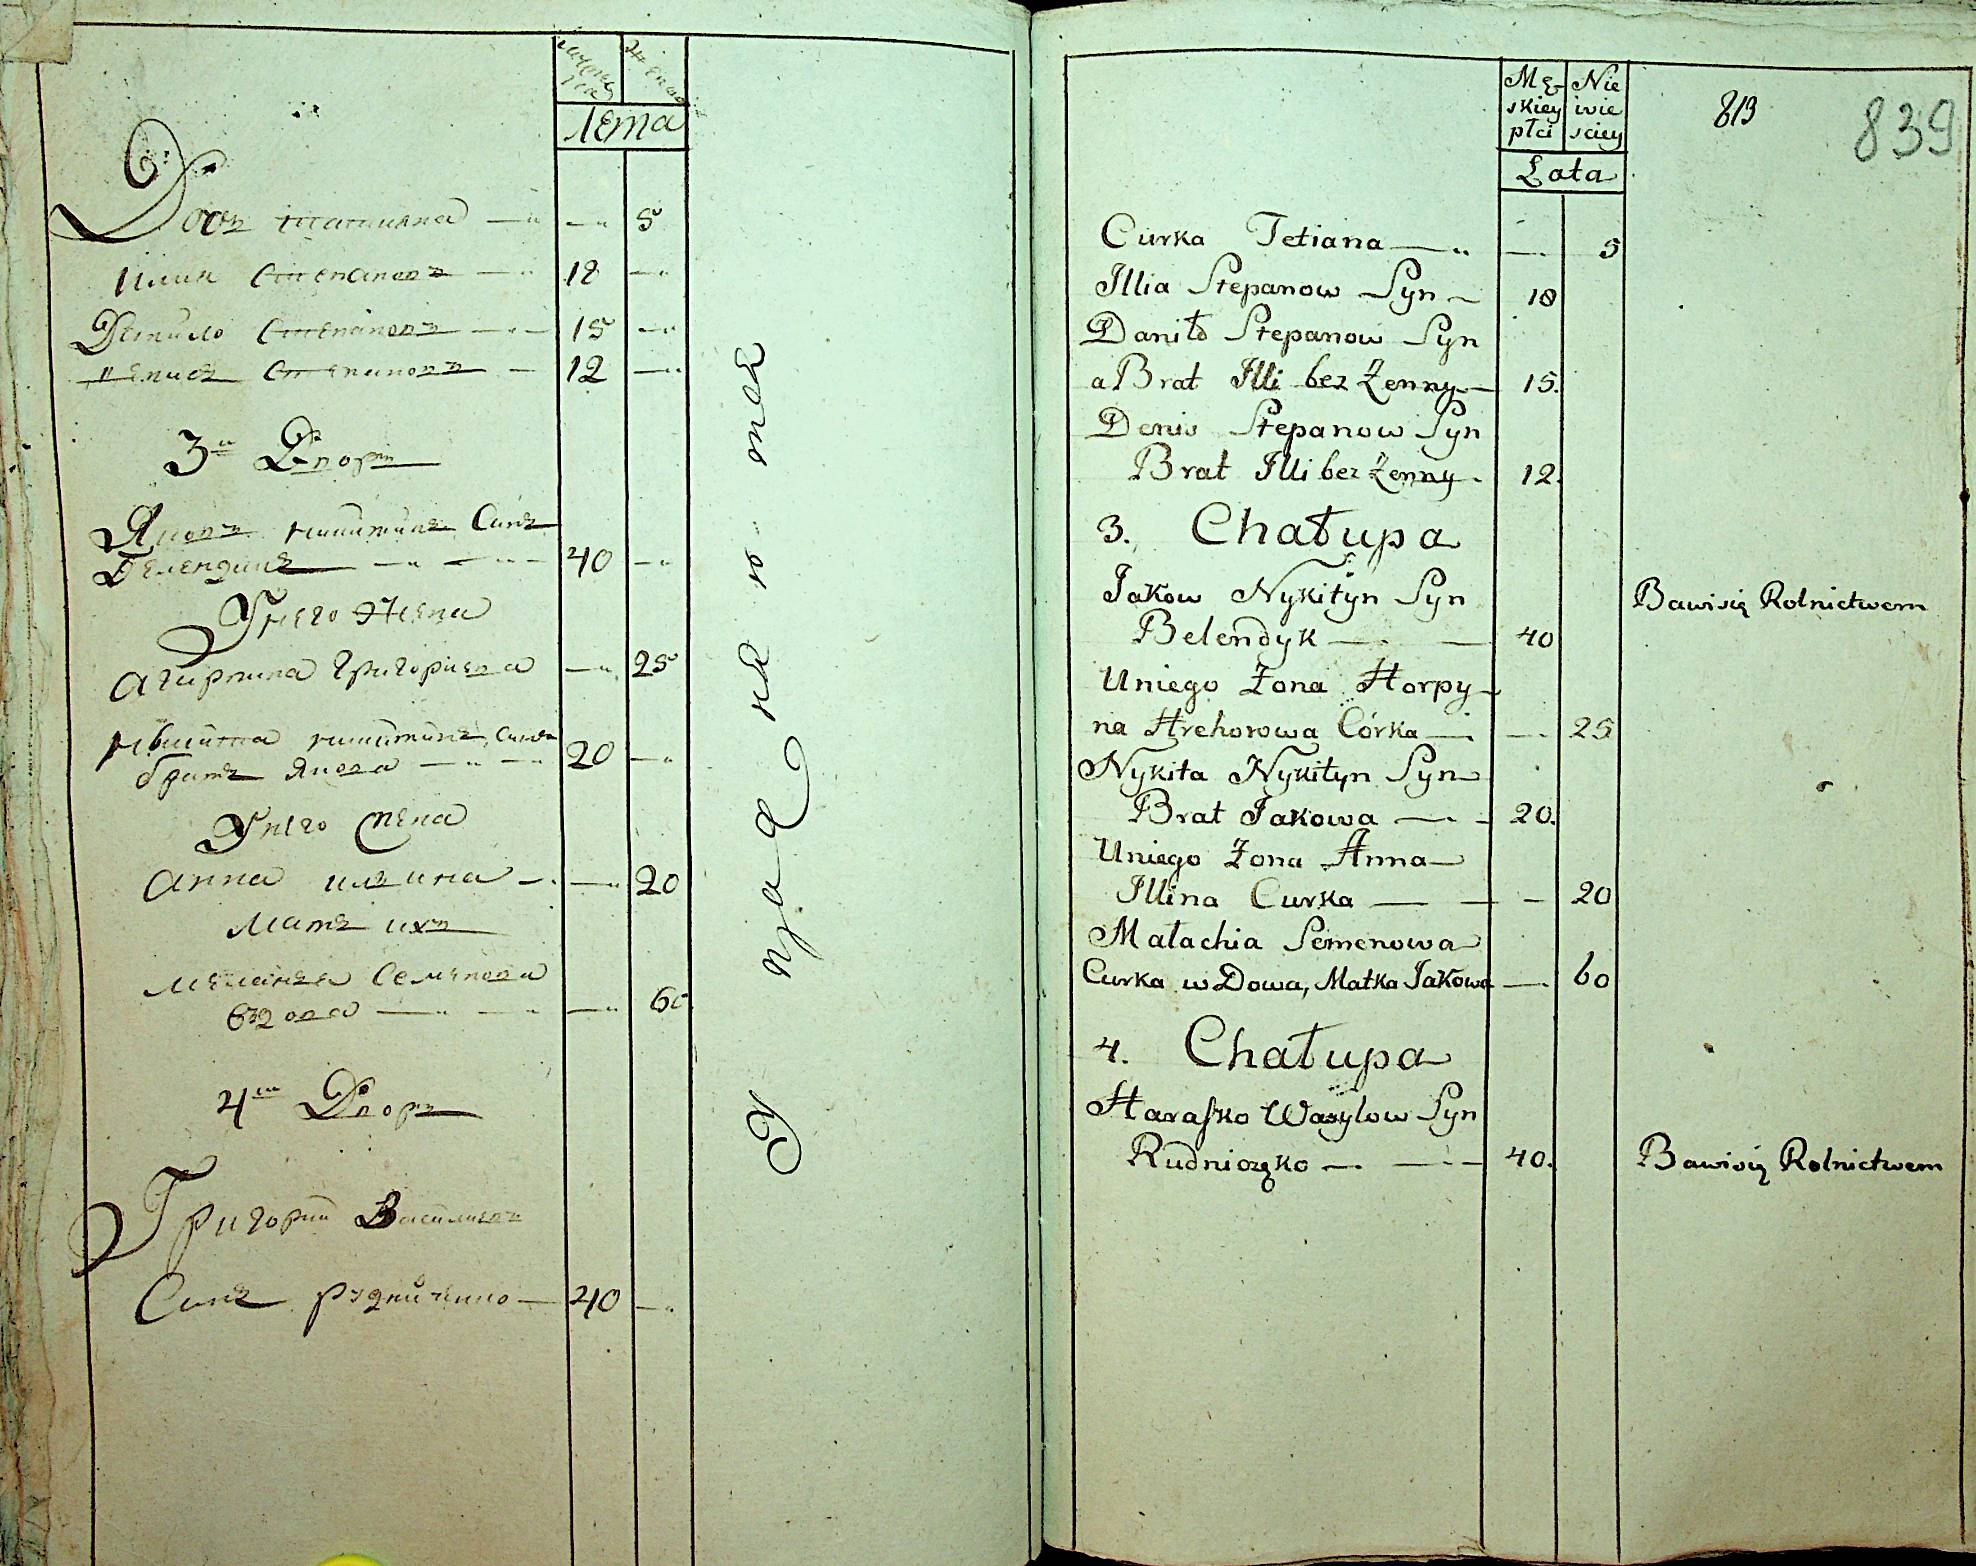 Лета
Дочь татияна 5
илия Степановъ 18
Данило Степановъ 15
Денисъ Степановъ 12
3й Дворъ
Яковъ никитинъ Синъ
Белендикъ 40
Унего Жена
агирпина Григориева 25
никита никитинъ Синъ
братъ Якова 20
Унего Жена
Анна илина 20
Мать ихъ
меланія Семенова
вдова 60
4й Дворъ
Григорий Василиевъ
Синъ рудниченко 40
Męskiey płci
Niewiesciey
Lata
813
839
Curka Tetiana 5
Illia Stepanow Syn 18
Daniło Stepanow Syn
a Brat Illi bez Żenny 15.
Denis Stepanow Syn
Brat Illi bez Żenny 12.
3. Chałupa
Jakow Nykityn Syn Bawisię Rolnictwem
Belendyk 40
Uniego Żona Horpy-
na Hrehorowa Córka 25
Nykita Nykityn Syn
Brat Jakowa 20.
Uniego Żona Anna
Illina Curka 20
Małachia Semenowa
Curka wDowa, Matka Jakowa 60
4. Chałupa
Harasko Wasylow Syn
Rudniczęko 40. Bawisię Rolnictwem